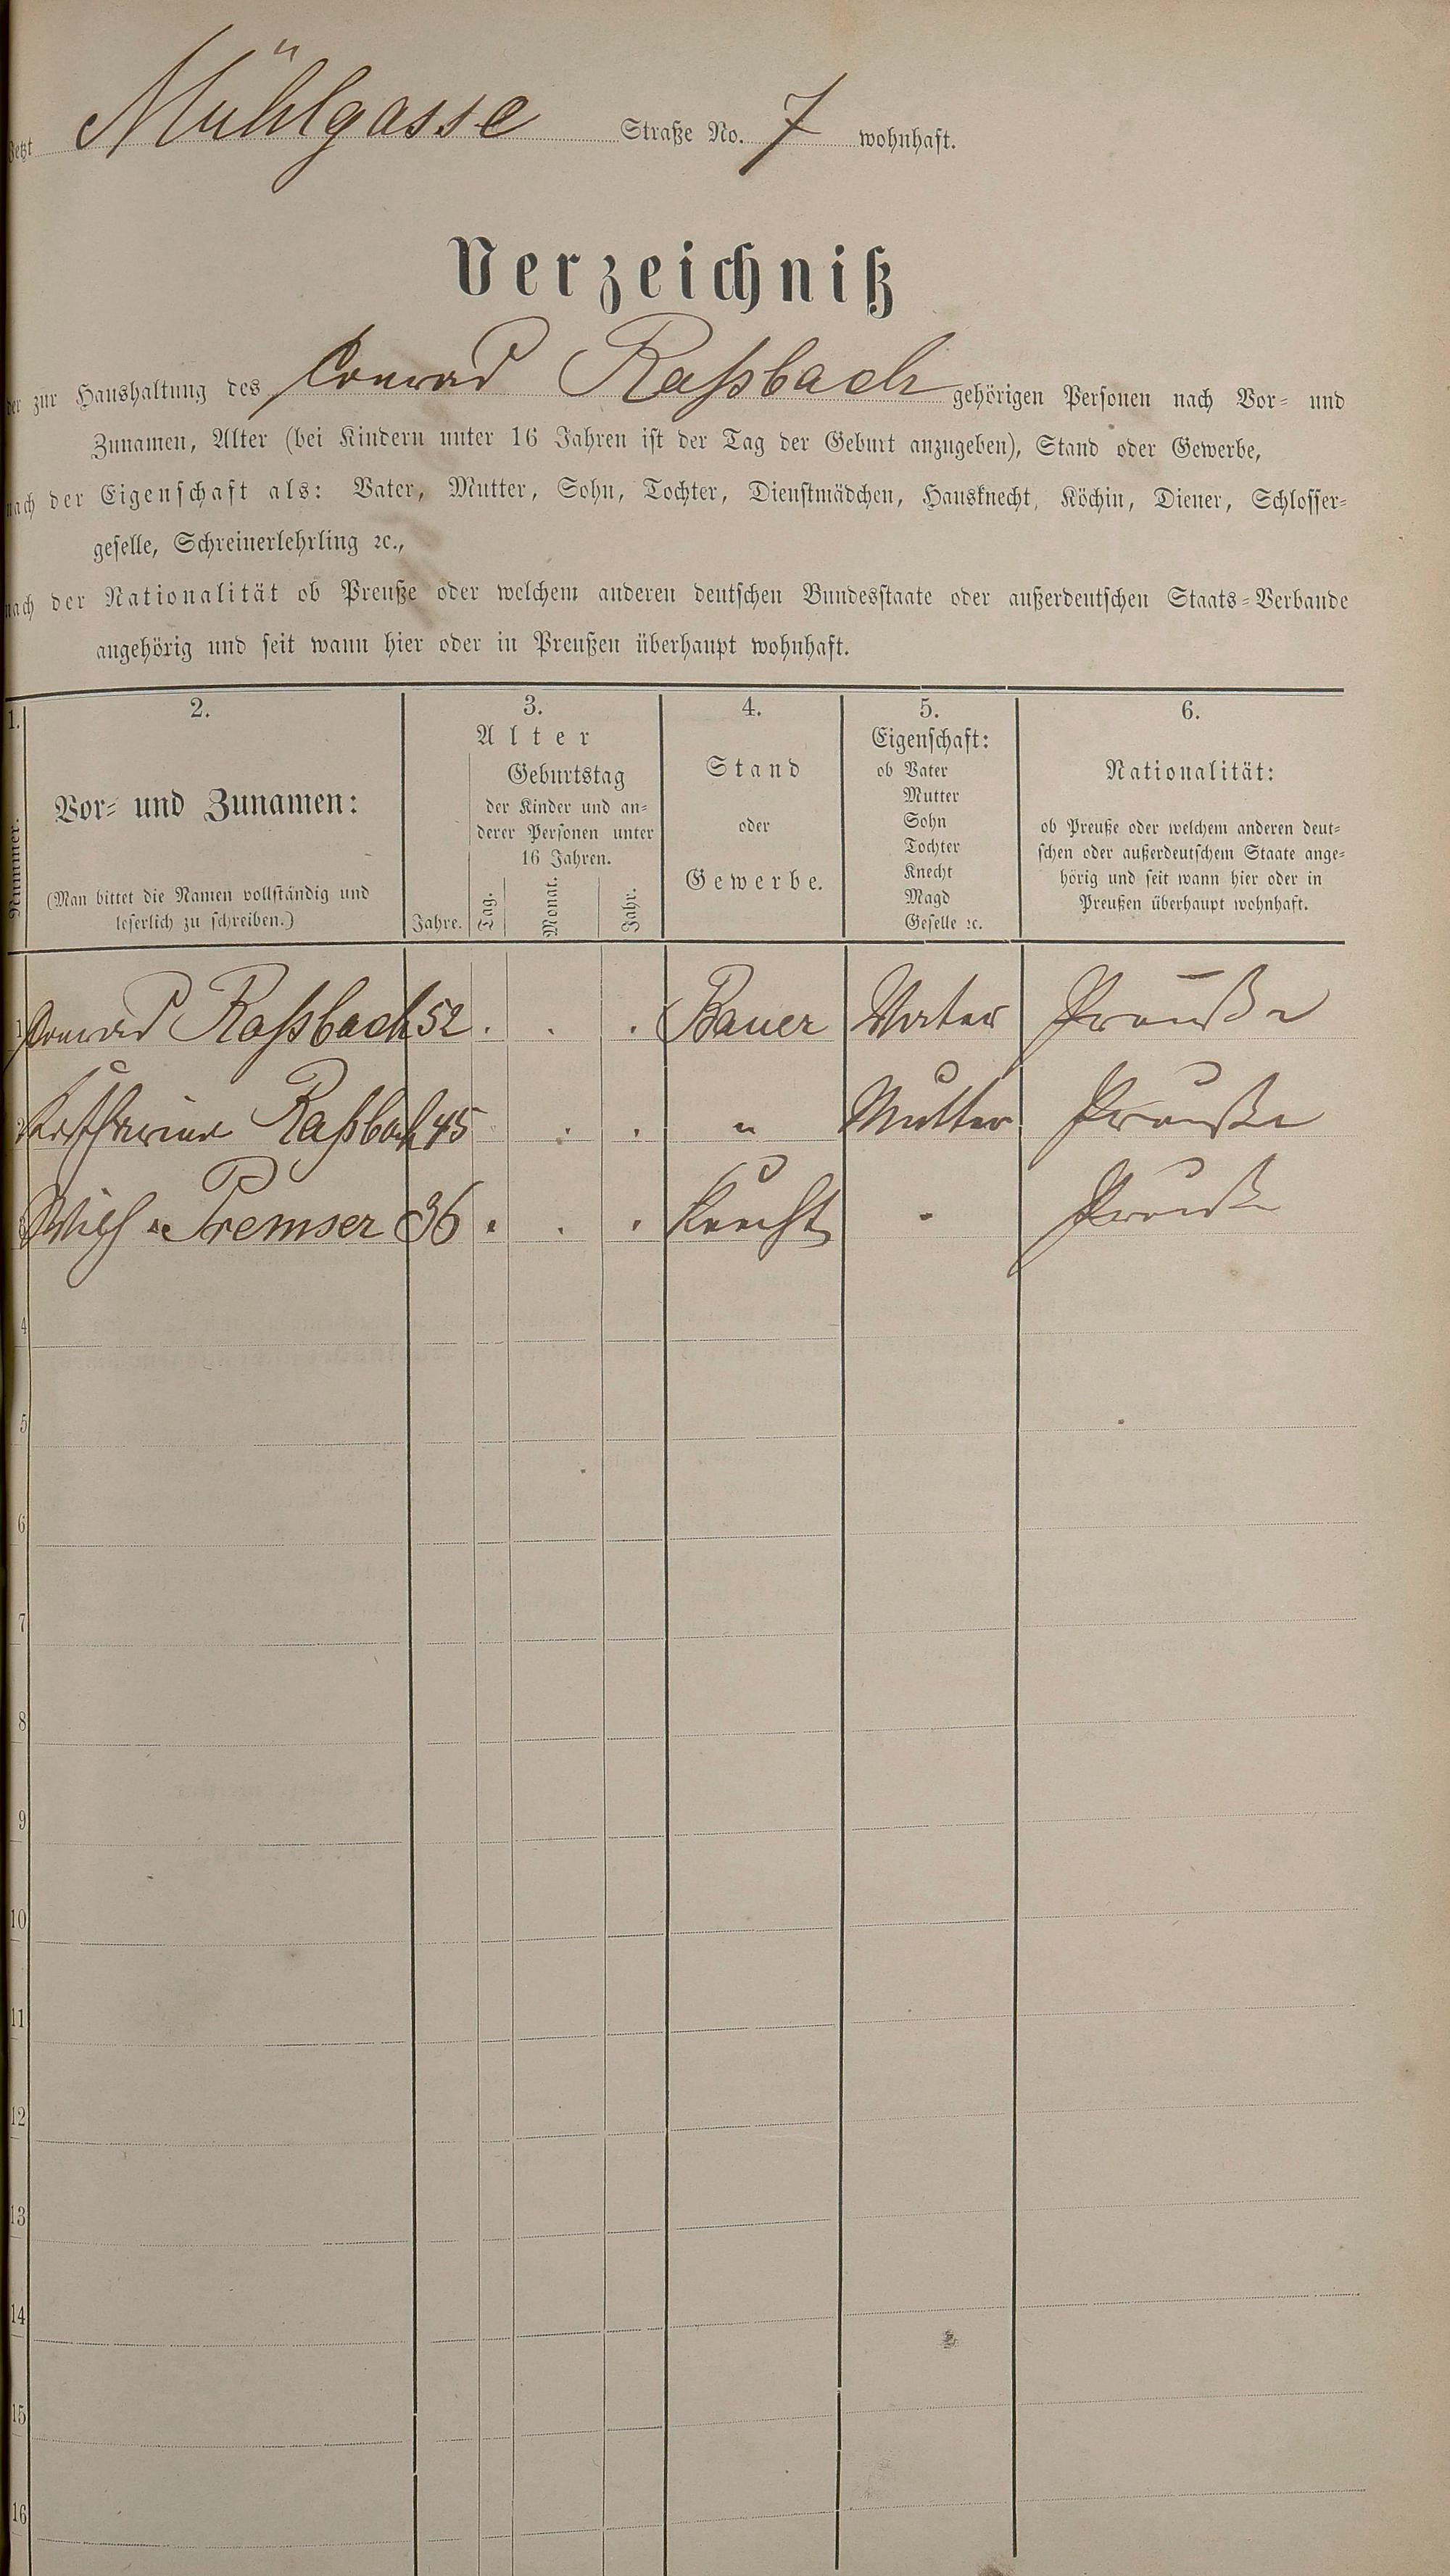 Jetzt Mühlgasse Straße No. 7 wohnhaft.
Verzeichniß
der zur Haushaltung des Conrad Raßbach gehörigen Personen nach Vor- und
Zunamen, Alter (bei Kindern unter 16 Jahren ist der Tag der Geburt anzugeben), Stand oder Gewerbe,
nach der Eigenschaft als: Vater, Mutter, Sohn, Tochter, Dienstmädchen, Hausknecht, Köchin, Diener, Schlosser-
geselle, Schreinerlehrling ꝛc.,
nach der Nationalität ob Preuße oder welchem anderen deutschen Bundesstaate oder außerdeutschen Staats-Verbande
angehörig und seit wann hier oder in Preußen überhaupt wohnhaft.
1. 2. 3. 4. 5. 6.
Nummer.
Vor- und Zunamen:
(Man bittet die Namen vollständig und
leserlich zu schreiben.)
Alter
Jahre.
Geburtstag
der Kinder und an-
derer Personen unter
16 Jahren.
Tag. Monat. Jahr.
Stand
oder
Gewerbe.
Eigenschaft:
ob Vater
Mutter
Sohn
Tochter
Knecht
Magd
Geselle ꝛc.
Nationalität:
ob Preuße oder welchem anderen deut-
schen oder außerdeutschem Staate ange-
hörig und seit wann hier oder in
Preußen überhaupt wohnhaft.
1 Conrad Raßbach 52 . . . Bauer Vater Preuße
2 Katharine Raßbach 45 . . " Mutter Preuße
3 Premser 36 . . . Knecht - Preuße
4
5
6
7
8
9
10
11
12
13
14
15
16